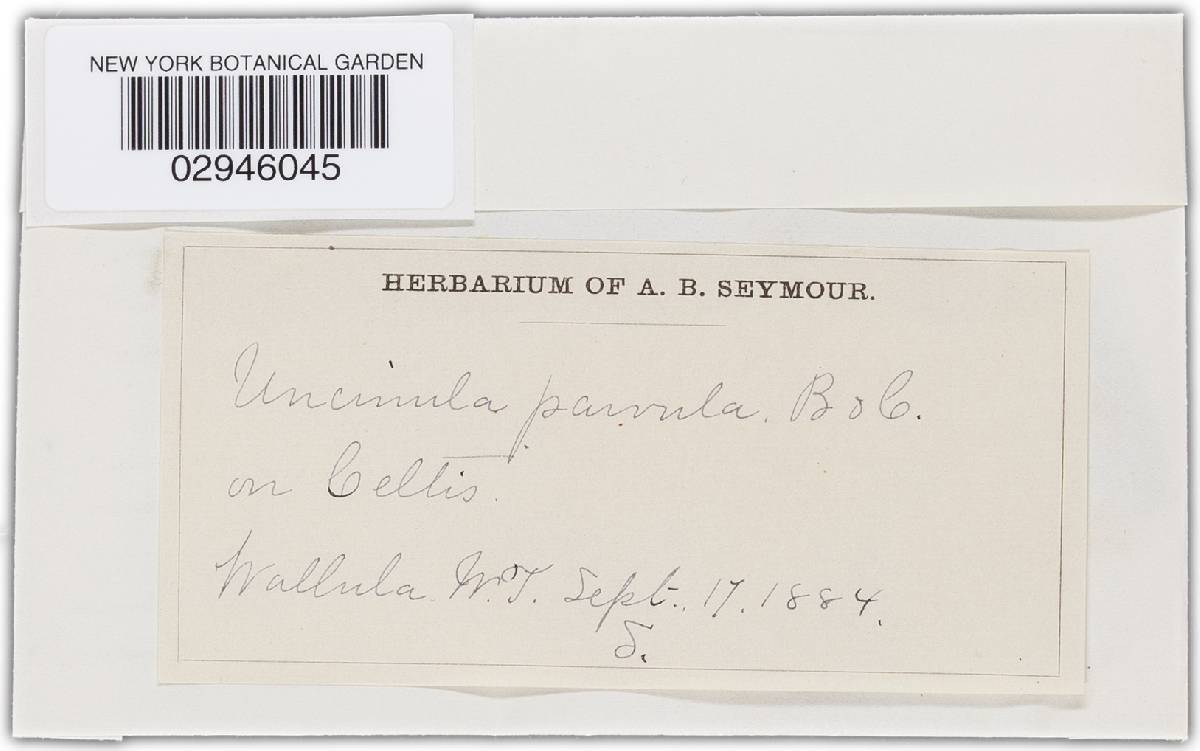 NEW YORK BOTANICAL GARDEN
02946045
HERBARIUM OF A. B. SEYMOUR.
Uncinula parvula. B & C.
on Celtis.
Wallula. W.T. Sept. 17. 1884.
S.